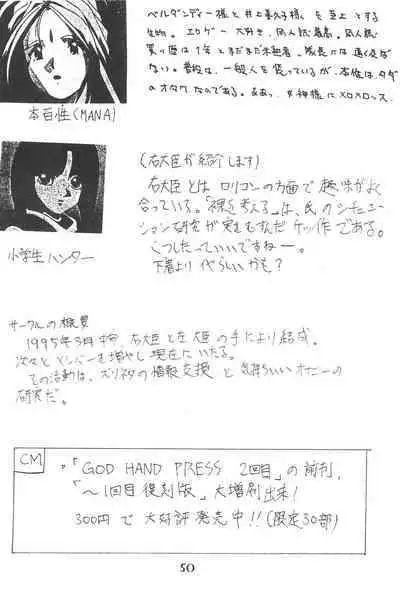 ベルダンディー様と井上喜久子様を至上とする
生物。エロゲー大好き、同人誌最高。同人誌
買い歴は1年とまだまだ未熟者、成長には遠く及ば
ない。普段は、一般人を装っているが、本性は、タダ
のオタクなのである。ああっ、女神様にメロメロッス。
本百性(MANA)
(右大臣が紹介します)
右大臣とはロリコンの方面で趣味がよく
合っている。「裸を考える」は、氏のシチュエー
ション研究が実をむすんだケッ作である。
くつしたっていいですねー。
下着よりイヤらしいかも?
小学生ハンター
サークルの概要
1995年3月中旬、右大臣と左大臣の手により結成。
次々とメンバーを増やし現在にいたる。
その活動は、ズリネタの情報交換と気持ちいいオナニーの
研究だ。
CM
「GOD HAND PRESS 2回目」の前刊、
「〜1回目復刻版」大増刷出来!
300円で大好評発売中!!(限定30部)
50